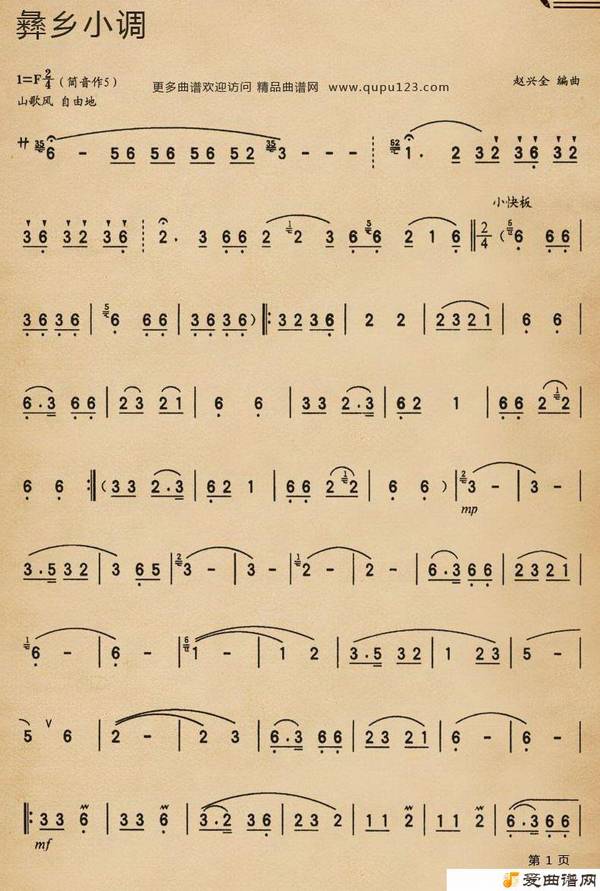 彝乡小调
1=F 2/4 (筒音作5) 更多曲谱欢迎访问 精品曲谱网 · www.qupu123.com 赵兴全 编曲
山歌风 自由地
サ 35 6 - 56 56 56 56 52 35 3 - - - 52 1. 2 32 36 32
小快板
36 32 36 2. 3 66 2 1 2 3 5 66 2 1 6 2/4 ( 5 6 66
3636 | 5 6 66 | 3636 ) |: 3236 | 2 2 | 2321 | 6 6 |
6.3 66 | 23 21 | 6 6 | 33 2.3 | 62 1 | 66 2 1 2 |
6 6 :| ( 33 2.3 | 62 1 | 66 2 1 2 | 6 6 ) | 2 3 - | 3 - |
mp
3.532 | 3 65 | 2 3 - | 3 - | 1 2 - | 2 - | 6.366 | 2321 |
1 6 - | 6 - | 6 1 - | 1 2 | 3.5 32 | 1 23 | 5 - |
5 ∨ 6 | 2 - | 2 3 | 6.3 66 | 23 21 | 6 - | 6 - |
|: 33 6 | 33 6 | 3.2 36 | 33 2 | 11 2 | 11 2 | 6.366 |
mf
第 1 页
爱曲谱网